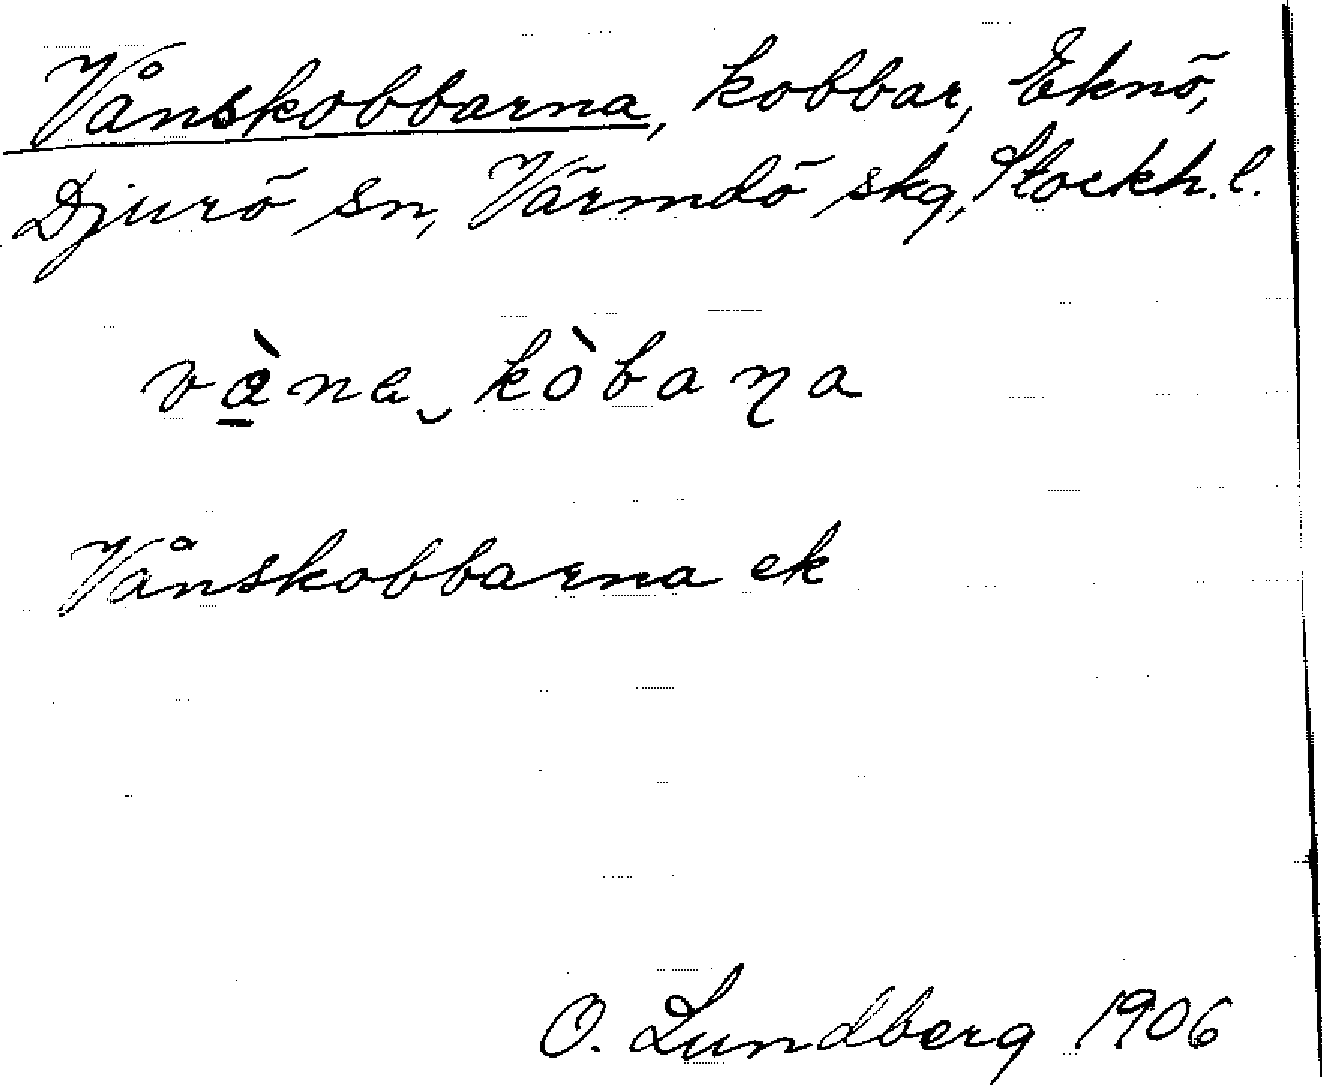 Vånskobbarna, kobbar, Eknö,
Djurö sn, Värmdö skg, Stockh. l.
vàna‿kòbaɳa
Vånskobbarna ek
O. Lundberg 1906